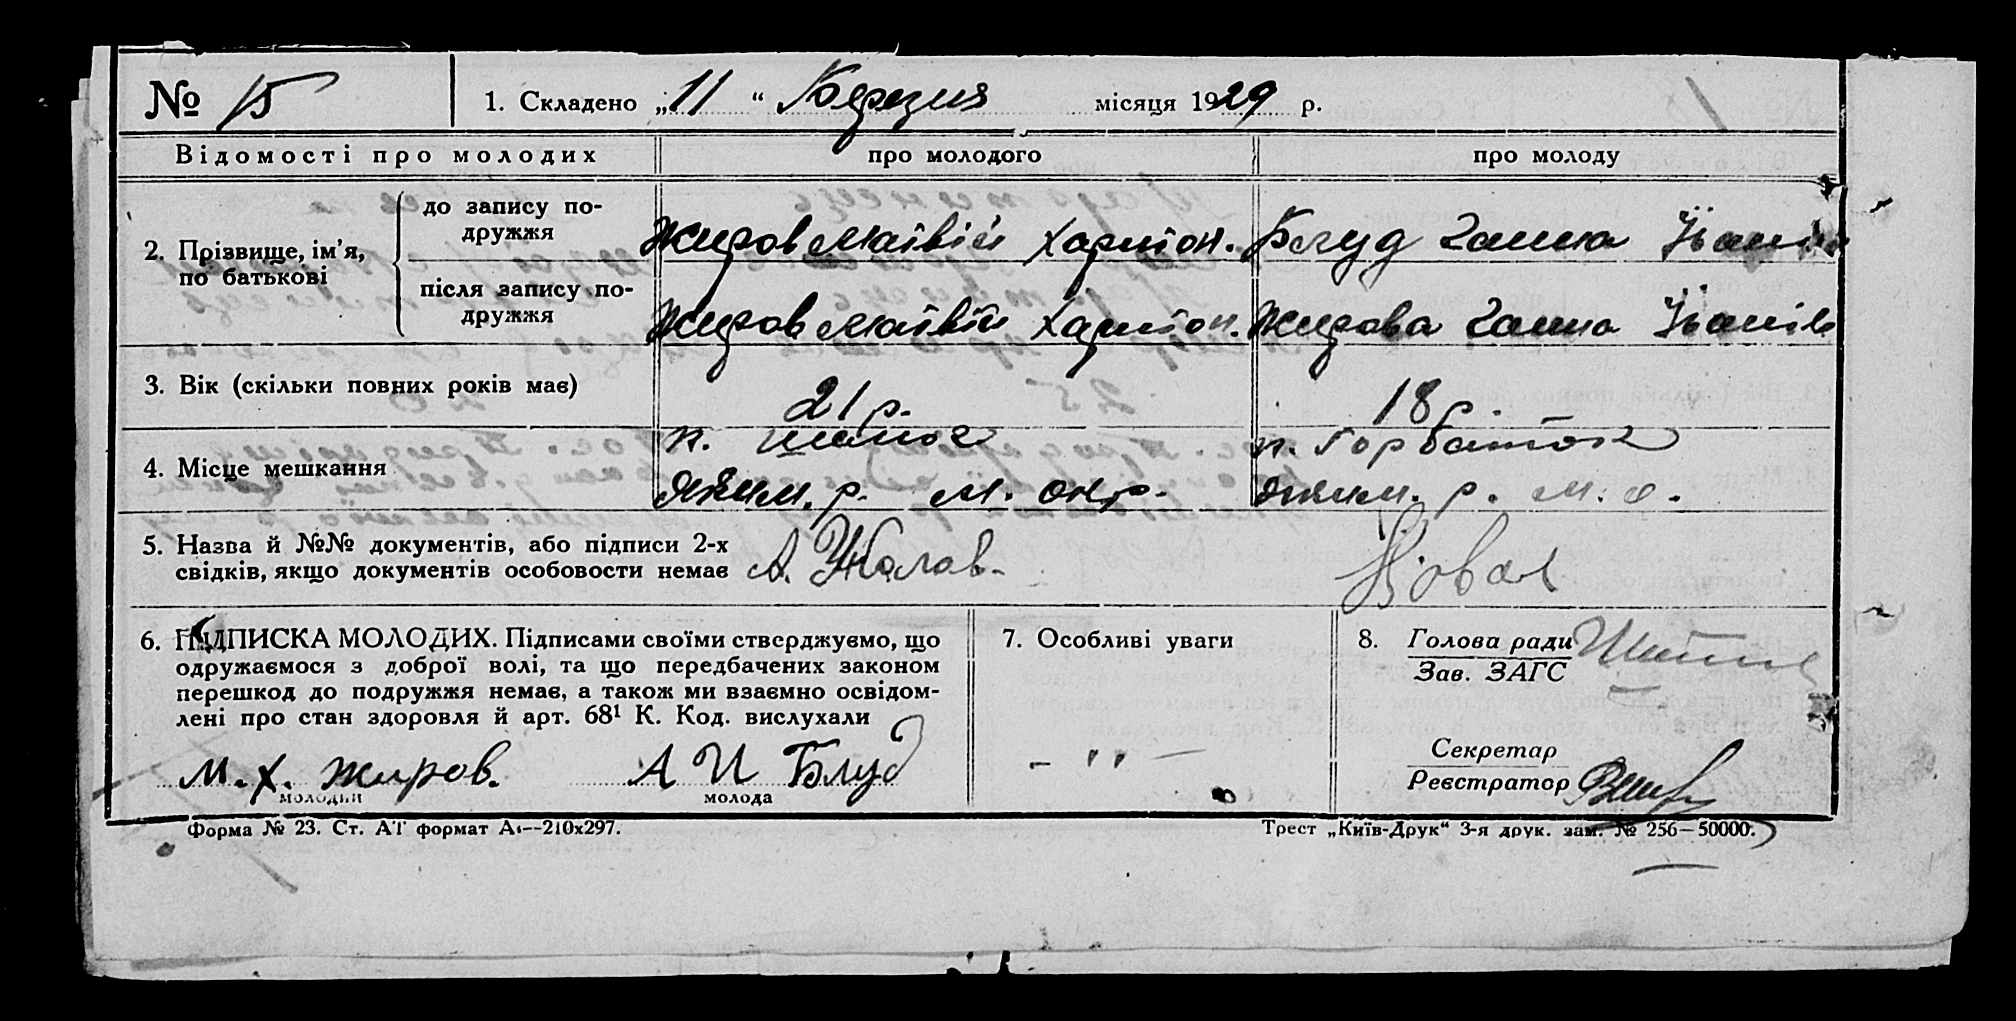 № 15 1. Складено „11“ Березня місяця 1929 р.
Відомості про молодих про молодого про молоду
2. Прізвище, ім'я, по батькові
до запису подружжя Жиров Матвій Харитон. Блуд Ганна Іванів
після запису подружжя Жиров Матвій Харитон. Жирова Ганна Іванів
3. Вік (скільки повних років має) 21 р. 18 р.
4. Місце мешкання
п. п. Горбатов
р. м. окр. р. м. о.
5. Назва й №№ документів, або підписи 2-х
свідків, якщо документів особовости немає А. Коваль
6. ПІДПИСКА МОЛОДИХ. Підписами своїми стверджуємо, що
одружаємося з доброї волі, та що передбачених законом
перешкод до подружжя немає, а також ми взаємно освідом-
лені про стан здоровля й арт. 68¹ К. Код. вислухали
М. Х. Жиров. А И Блуд
молодий молода
7. Особливі уваги
– " –
8. Голова ради
Зав. ЗАГС
Секретар
Реєстратор
Форма № 23. Ст. АТ формат А₄—210x297. Трест „Київ-Друк“ 3-я друк. зам. № 256—50000.